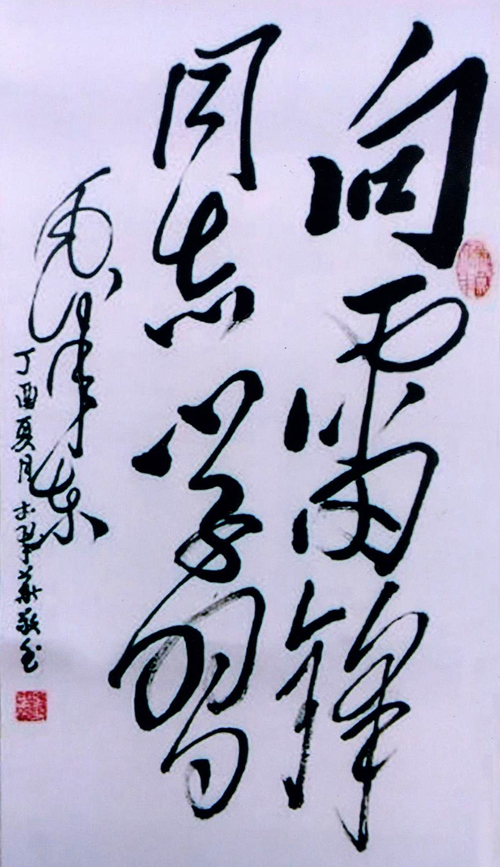 向雷锋
同志学习
毛泽东
丁酉夏月